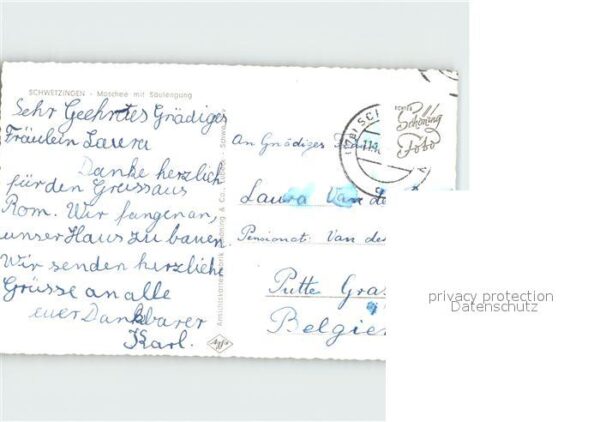 SCHWETZINGEN - Moschee mit Säulengang
Sehr Geehrtes Gnädiges
Fräulein Laura
Danke herzlich
für den Gruss aus
Rom. Wir fangen an,
unser Haus zu bauen.
Wir senden herzliche
Grüsse an alle
euer Dankbarer
Karl.
Ansichtskartenfabrik Schöning & Co., Lübeck
Agfa
Schöning
Foto
An Gnädiges
Laura Van de
Pensionat: Van de
Putte Gras
Belgie
privacy protection
Datenschutz